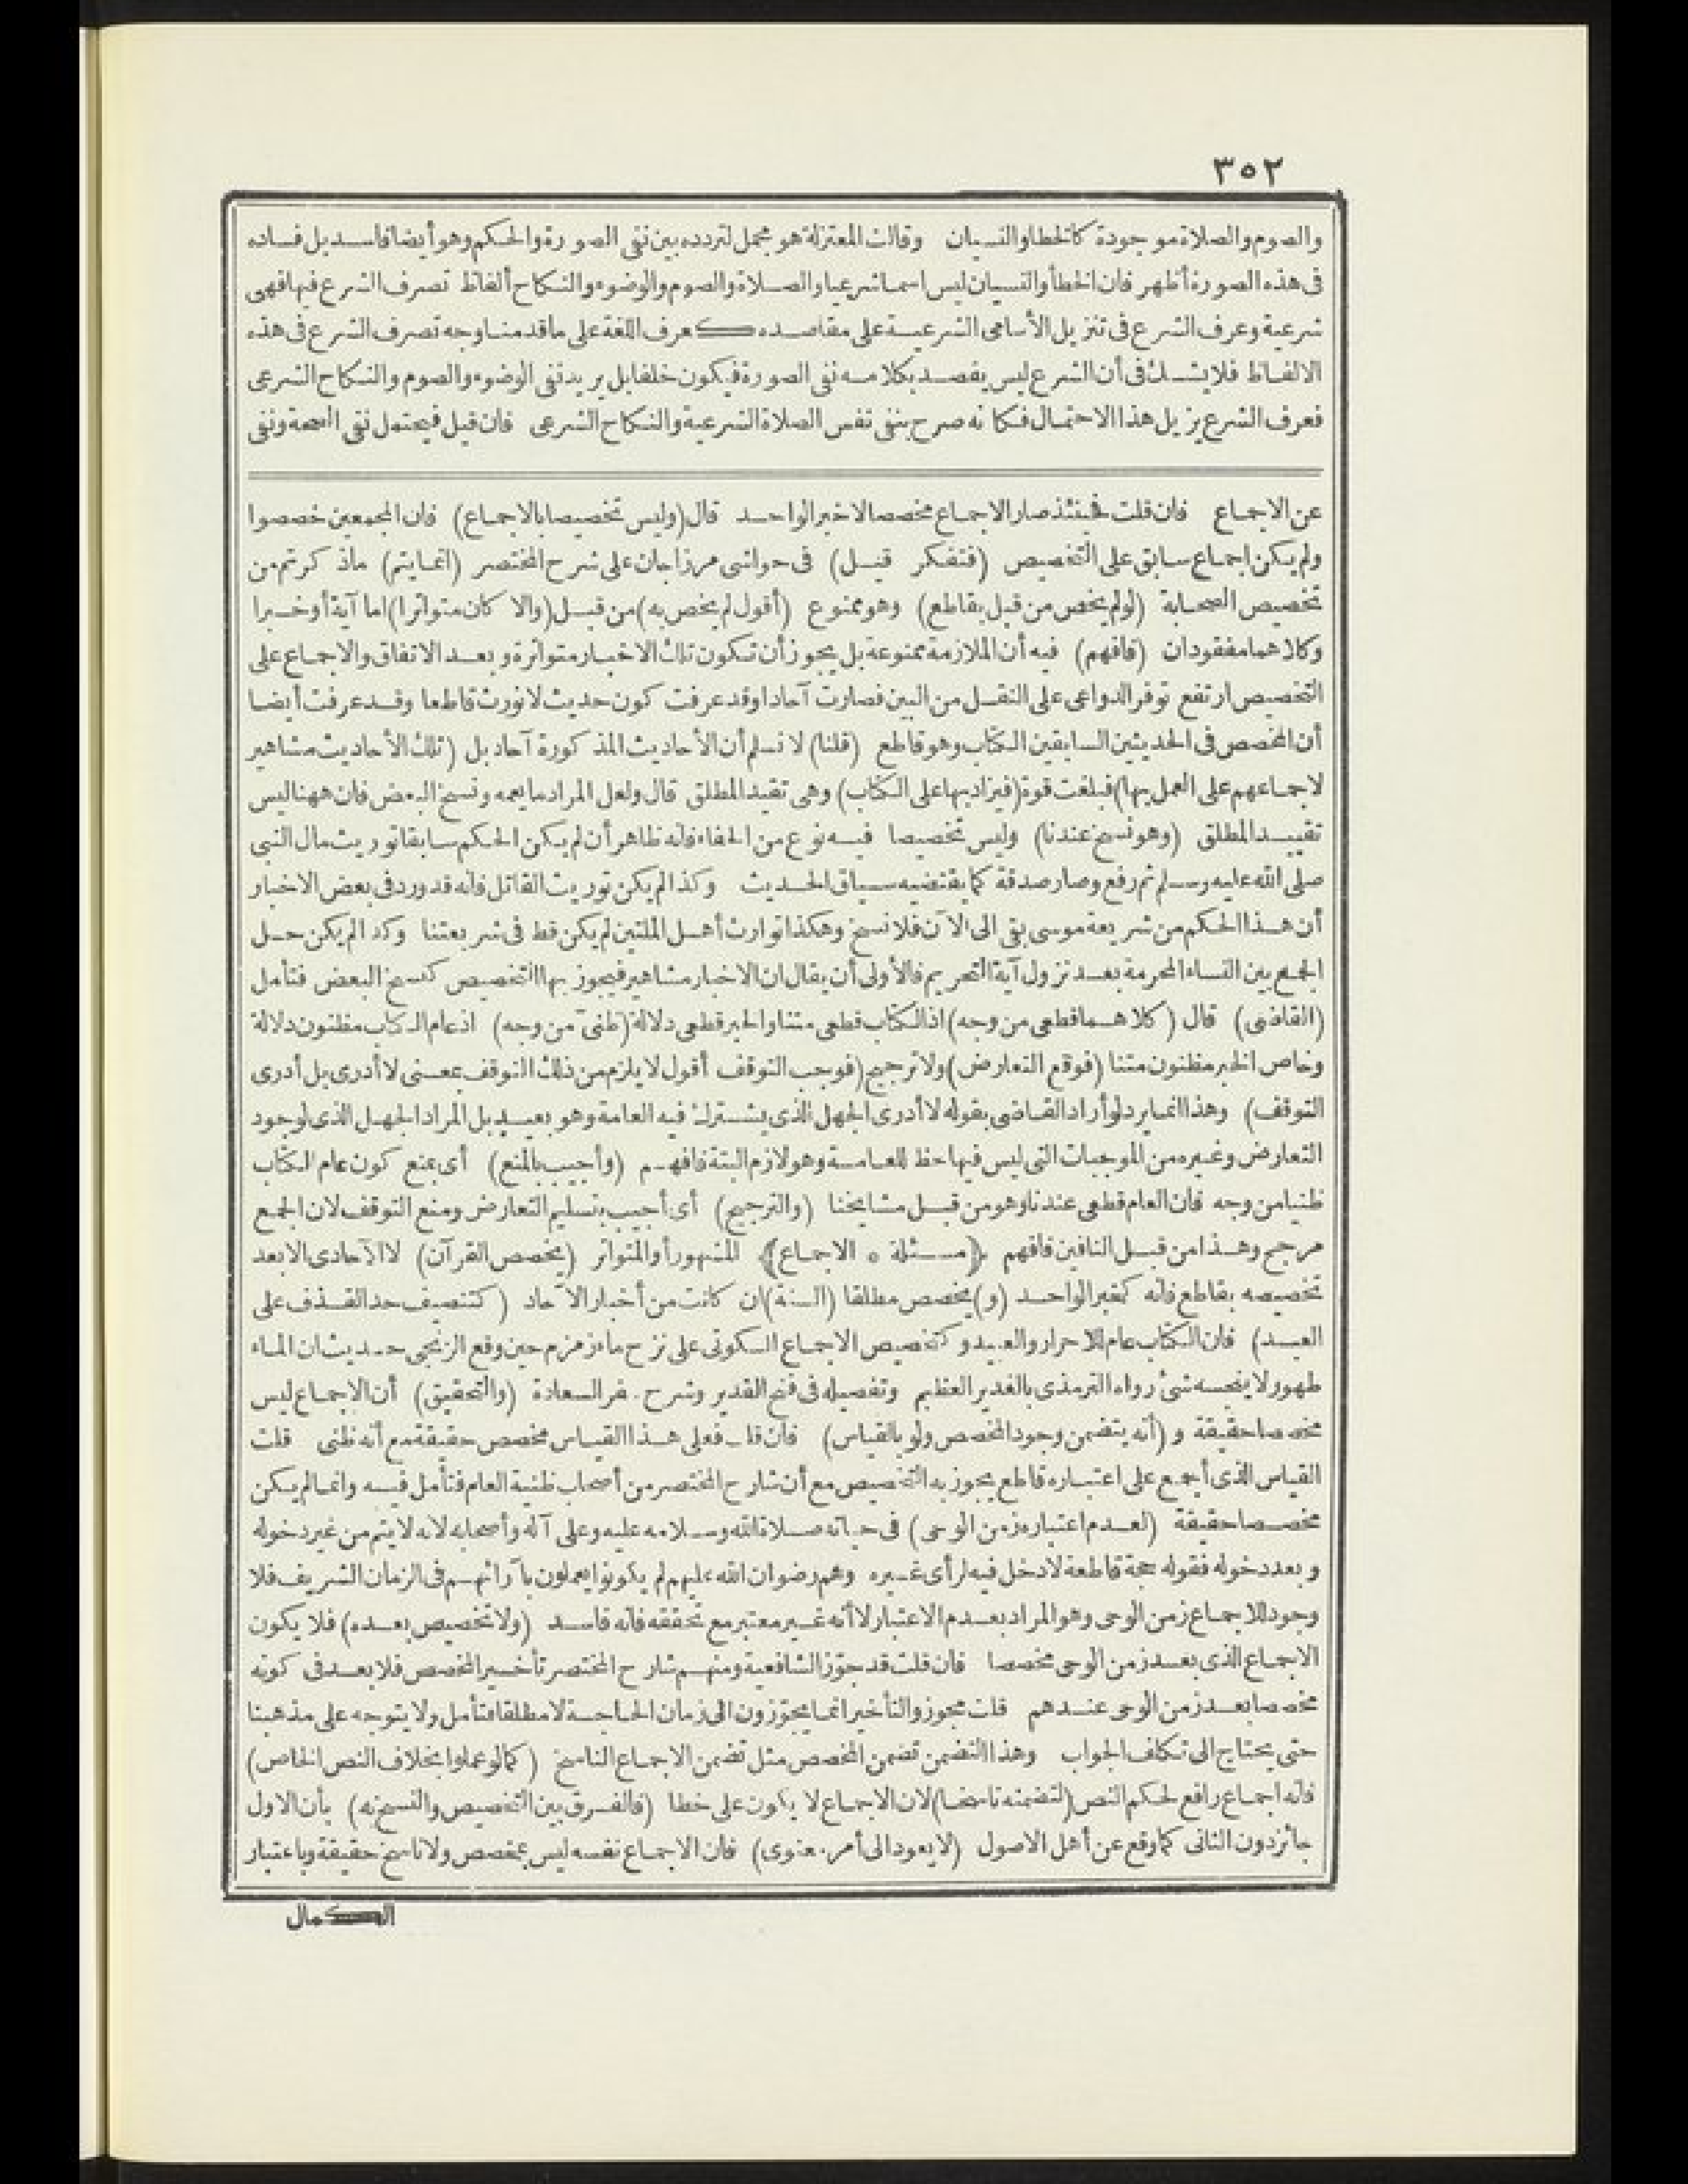 ٣٥٢
والصوم والصلاة موجودة كالخطا والنسيان وقالت المعتزلة هو مجمل لتردده بين نفى الصورة والحكم وهو أيضا فاسد بل فساده
فى هذه الصورة أظهر فان الخطأ والنسيان ليس اسما شرعيا والصلاة والصوم والوضوء والنكاح ألفاظ تصرف الشرع فيها فهى
شرعية وعرف الشرع فى تنزيل الأسامى الشرعية على مقاصده كعرف اللغة على ما قدمنا وجه تصرف الشرع فى هذه
الالفاظ فلا يشك فى أن الشرع ليس يقصد بكلامه نفى الصورة فيكون خلفا بل يريد نفى الوضوء والصوم والنكاح الشرعى
فعرف الشرع يزيل هذا الاحتمال فكأنه صرح بنفى نفس الصلاة الشرعية والنكاح الشرعى فان قيل فيحتمل نفى الصحة ونفى
عن الاجماع فان قلت فحينئذ صار الاجماع مخصصا لا خبر الواحد قال (وليس تخصيصا بالاجماع) فان المجمعين خصصوا
ولم يكن اجماع سابق على التخصيص (فتفكر قيل) فى حواشى مرزا جان على شرح المختصر (انما يتم) ما ذكرتم من
تخصيص الصحابة (لو لم يخص من قبل بقاطع) وهو ممنوع (أقول لم يخص به) من قبل (والا كان متواترا) اما آية أو خبرا
وكلاهما مفقودان (فافهم) فيه أن الملازمة ممنوعة بل يجوز أن تكون تلك الاخبار متواترة وبعد الاتفاق والاجماع على
التخصيص ارتفع توفر الدواعى على النقل من البين فصارت آحادا وقد عرفت كون حديث لا نورث قاطعا وقد عرفت أيضا
أن المخصص فى الحديثين السابقين الكتاب وهو قاطع (قلنا) لا نسلم أن الأحاديث المذكورة آحاد بل (تلك الأحاديث مشاهير
لاجماعهم على العمل بها) فبلغت قوة (فيزاد بها على الكتاب) وهى تقيد المطلق قال ولعل المراد ما يعمه ونسخ البعض فان ههنا ليس
تقييد المطلق (وهو نسخ عندنا) وليس تخصيصا فيه نوع من الخفاء فانه ظاهر أن لم يكن الحكم سابقا توريث مال النبى
صلى الله عليه وسلم ثم رفع وصار صدقة كما يقتضيه سياق الحديث وكذا لم يكن توريث القاتل فانه قد ورد فى بعض الاخبار
أن هذا الحكم من شريعة موسى بقى الى الآن فلا نسخ وهكذا توارث أهل الملتين لم يكن قط فى شريعتنا وكذا لم يكن حل
الجمع بين النساء المحرمة بعد نزول آية التحريم فالأولى أن يقال ان الاخبار مشاهير فيجوز بها التخصيص كنسخ البعض فتأمل
(القاضى) قال (كلاهما قطعى من وجه) اذ الكتاب قطعى متنا والخبر قطعى دلالة (ظنى من وجه) اذ عام الكتاب مظنون دلالة
وخاص الخبر مظنون متنا (فوقع التعارض) ولا ترجيح (فوجب التوقف أقول لا يلزم من ذلك التوقف بمعنى لا أدرى بل أدرى
التوقف) وهذا انما يرد لو أراد القاضى بقوله لا أدرى الجهل الذى يشترك فيه العامة وهو بعيد بل المراد الجهل الذى لوجود
التعارض وغيره من الموجبات التى ليس فيها حظ للعامة وهو لازم البتة فافهم (وأجيب بالمنع) أى بمنع كون عام الكتاب
ظنيا من وجه فان العام قطعى عندنا وهو من قبل مشايخنا (والترجيح) أى أجيب بتسليم التعارض ومنع التوقف لان الجمع
مرجح وهذا من قبل النافين فافهم ﴿مسئلة * الاجماع﴾ المشهور أو المتواتر (يخصص القرآن) لا الآحادى الا بعد
تخصيصه بقاطع فانه كخبر الواحد (و) يخصص مطلقا (السنة) ان كانت من أخبار الآحاد (كتنصيف حد القذف على
العبد) فان الكتاب عام للاحرار والعبيد وكتخصيص الاجماع السكوتى على نزح ماء زمزم حين وقع الزنجى حديث ان الماء
طهور لا ينجسه شئ رواه الترمذى بالغدير العظيم وتفصيله فى فتح القدير وشرح سفر السعادة (والتحقيق) أن الاجماع ليس
مخصصا حقيقة و (أنه يتضمن وجود المخصص ولو بالقياس) فان قلت فعلى هذا القياس مخصص حقيقة مع أنه ظنى قلت
القياس الذى أجمع على اعتباره قاطع يجوز به التخصيص مع أن شارح المختصر من أصحاب ظنية العام فتأمل فيه وانما لم يكن
مخصصا حقيقة (لعدم اعتباره زمن الوحى) فى حياته صلاة الله وسلامه عليه وعلى آله وأصحابه لانه لا يتم من غير دخوله
وبعد دخوله فقوله حجة قاطعة لا دخل فيه لرأى غيره وهم رضوان الله عليهم لم يكونوا يعملون بآرائهم فى الزمان الشريف فلا
وجود للاجماع زمن الوحى وهو المراد بعدم الاعتبار لا أنه غير معتبر مع تحققه فانه فاسد (ولا تخصيص بعده) فلا يكون
الاجماع الذى بعد زمن الوحى مخصصا فان قلت قد جوّز الشافعية ومنهم شارح المختصر تأخير المخصص فلا بعد فى كونه
مخصصا بعد زمن الوحى عندهم قلت مجوزو التأخير انما يجوّزون الى زمان الحاجة لا مطلقا فتأمل ولا يتوجه على مذهبنا
حتى يحتاج الى تكلف الجواب وهذا التضمن تضمن المخصص مثل تضمن الاجماع الناسخ (كما لو عملوا بخلاف النص الخاص)
فانه اجماع رافع لحكم النص (لتضمنه ناسخا) لان الاجماع لا يكون على خطا (فالفرق بين التخصيص والنسخ به) بأن الاول
جائز دون الثانى كما وقع عن أهل الاصول (لا يعود الى أمر معنوى) فان الاجماع نفسه ليس بمخصص ولا ناسخ حقيقة وباعتبار
الكمال